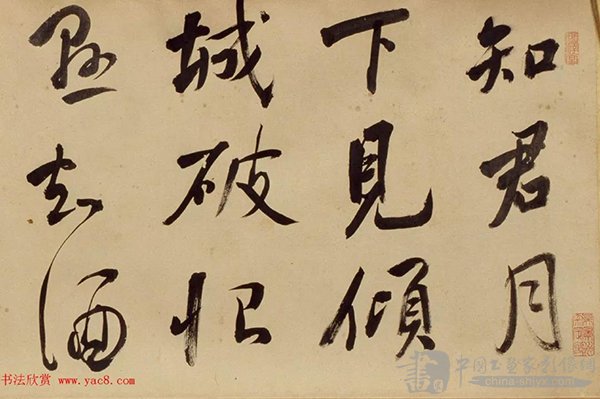 知君月
下見傾
城破恨
懸知酒
书法欣赏 www.yac8.com
書 中国书画家影像网
china-shyx.com